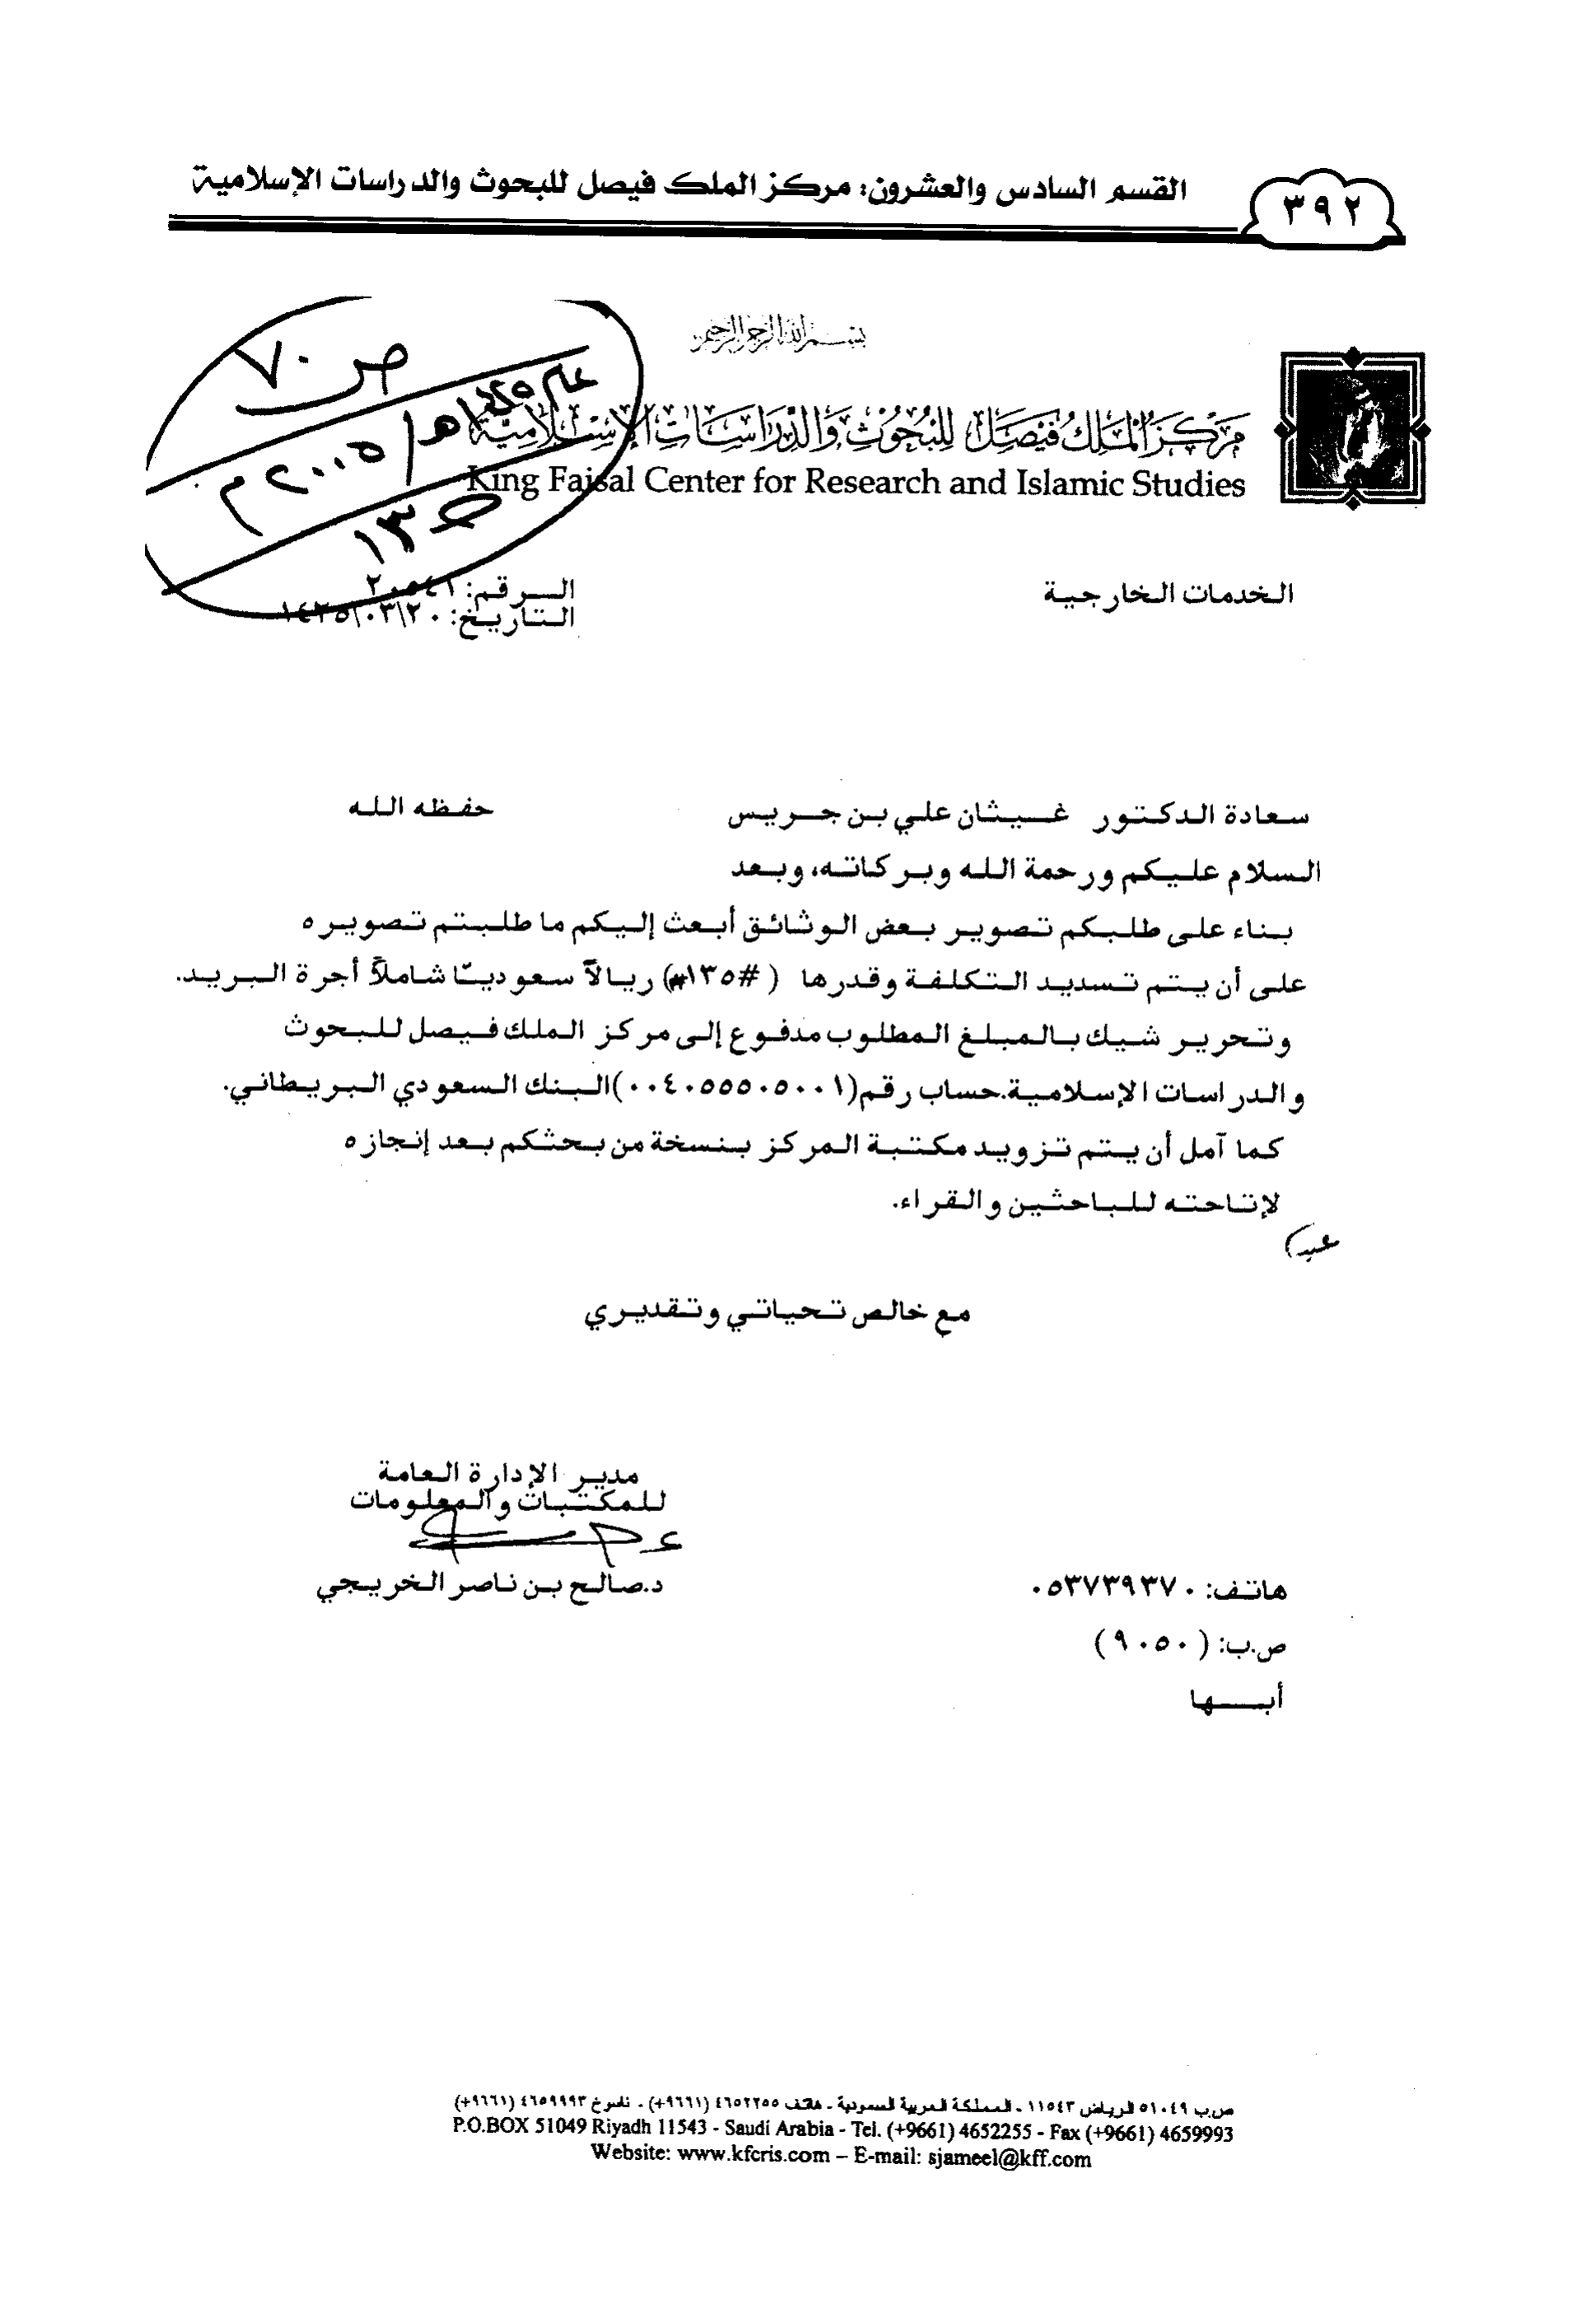 القسم السادس والعشرون: مركز الملك فيصل للبحوث والدراسات الإسلامية
٣٩٢
بسم الله الرحمن الرحيم
ص ٧٠
عام ١٤٢٥هـ/ ٢٠٠٥م
مركز الملك فيصل للبحوث والدراسات الإسلامية
King Faisal Center for Research and Islamic Studies
الخدمات الخارجية
الرقم:
التاريخ: ١٤٢٥\٠٣\٢٠
سعادة الدكتور غيثان علي بن جريس حفظه الله
السلام عليكم ورحمة الله وبركاته، وبعد
بناء على طلبكم تصوير بعض الوثائق أبعث إليكم ما طلبتم تصويره
على أن يتم تسديد التكلفة وقدرها (#١٣٥#) ريالاً سعوديّا شاملاً أجرة البريد.
وتحرير شيك بالمبلغ المطلوب مدفوع إلى مركز الملك فيصل للبحوث
والدراسات الإسلامية.حساب رقم(٠٠٤٠٥٥٥٠٥٠٠١)البنك السعودي البريطاني.
كما آمل أن يتم تزويد مكتبة المركز بنسخة من بحثكم بعد إنجازه
لإتاحته للباحثين والقراء.
مع خالص تحياتي وتقديري
مدير الإدارة العامة
للمكتبات والمعلومات
د.صالح بن ناصر الخريجي
هاتف: ٠٥٣٧٣٩٣٧٠
ص.ب: (٩٠٥٠)
أبها
ص.ب ٥١٠٤٩ الرياض ١١٥٤٣ - المملكة العربية السعودية - هاتف ٤٦٥٢٢٥٥ (٩٦٦١+) - ناسوخ ٤٦٥٩٩٩٣ (٩٦٦١+)
P.O.BOX 51049 Riyadh 11543 - Saudi Arabia - Tel. (+9661) 4652255 - Fax (+9661) 4659993
Website: www.kfcris.com – E-mail: sjameel@kff.com